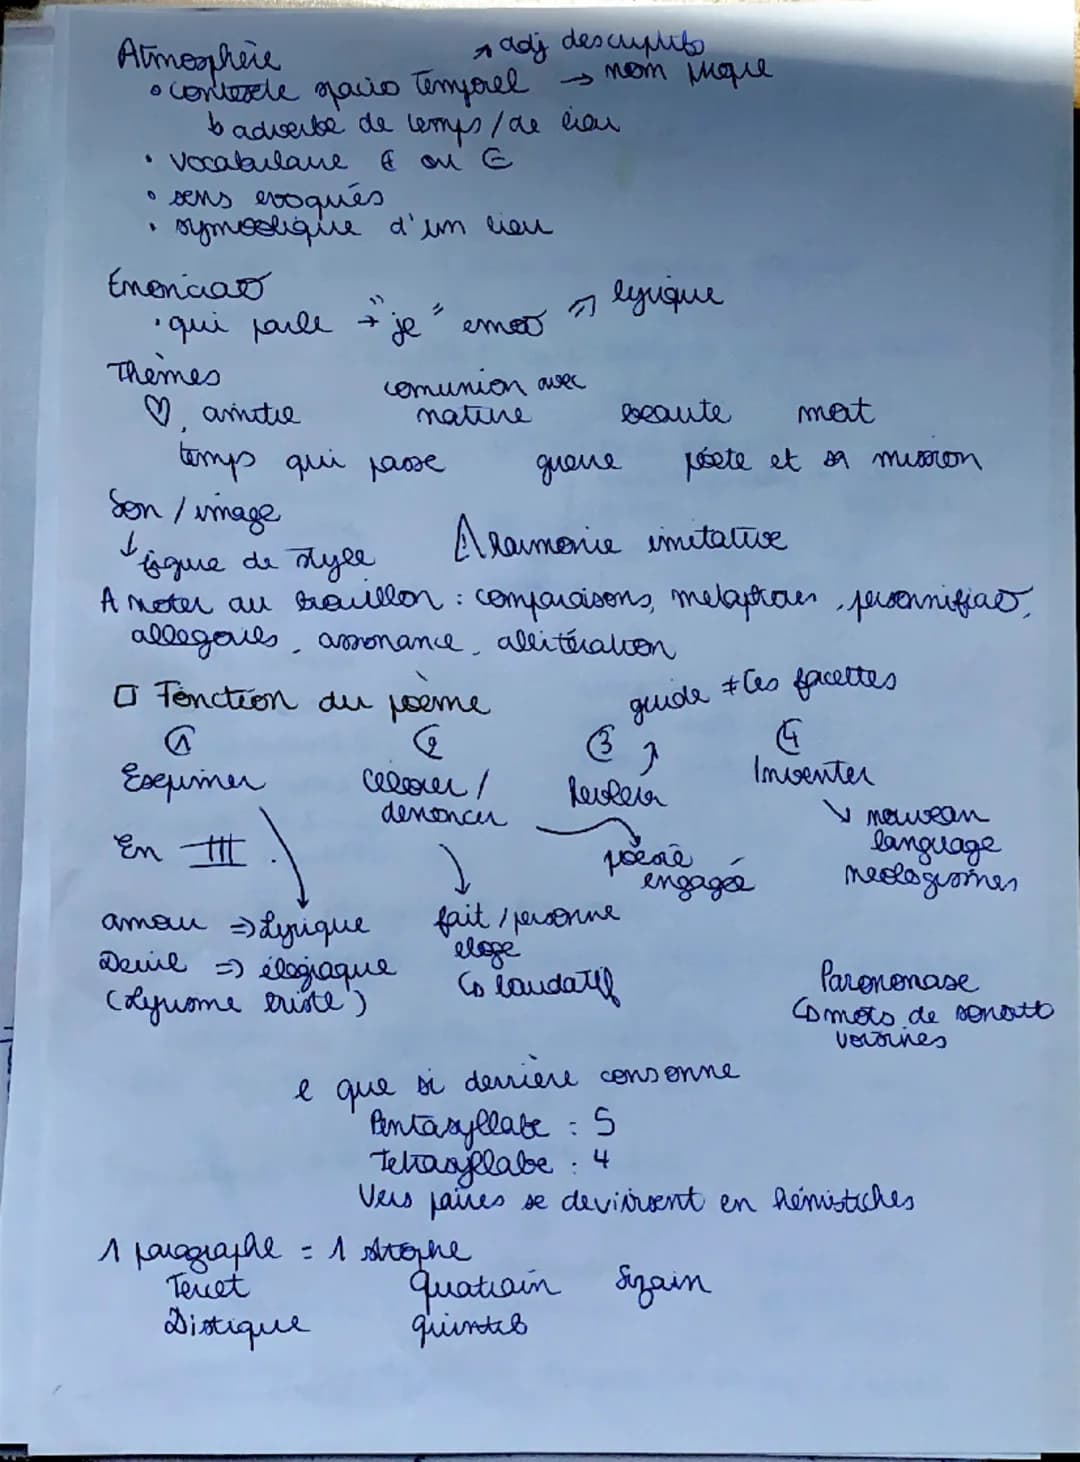 Atmosphère
↗ adj descriptifs
• contexte spacio temporel → nom propre
↳ adverbe de temps / de lieu
• vocabulaire ⊕ ou ⊖
• sens evoqués
• symbolique d'un lieu
Énonciat°
• qui parle → "je" emot° => lyrique
Thèmes
♡, amitie
comunion avec nature
beaute
mort
temps qui passe
guerre
poète et sa mission
Son / image
↓ figure de style
⚠ harmonie imitative
A noter au brouillon : comparaisons, metaphores, personnificat°,
allegories, assonance, allitération
□ Fonction du poème
guide ≠ les facettes
① ② ③ ④
Exprimer
celebrer / denoncer
Inventer
↘ nouveau language
neologismes
En III.
poèsie engagée
amour => Lyrique
fait / personne
eloge
↳ laudatif
Deuil => élegiaque
(Lyrisme triste)
Paronomase
↳ mots de sonorité
voisines
e que si derrière consonne
Pentasyllabe : 5
Tetrasyllabe : 4
Vers paires se devivisent en hémistiches
1 paragraphe = 1 strophe
Tercet Quatrain Sizain
Distique quintil